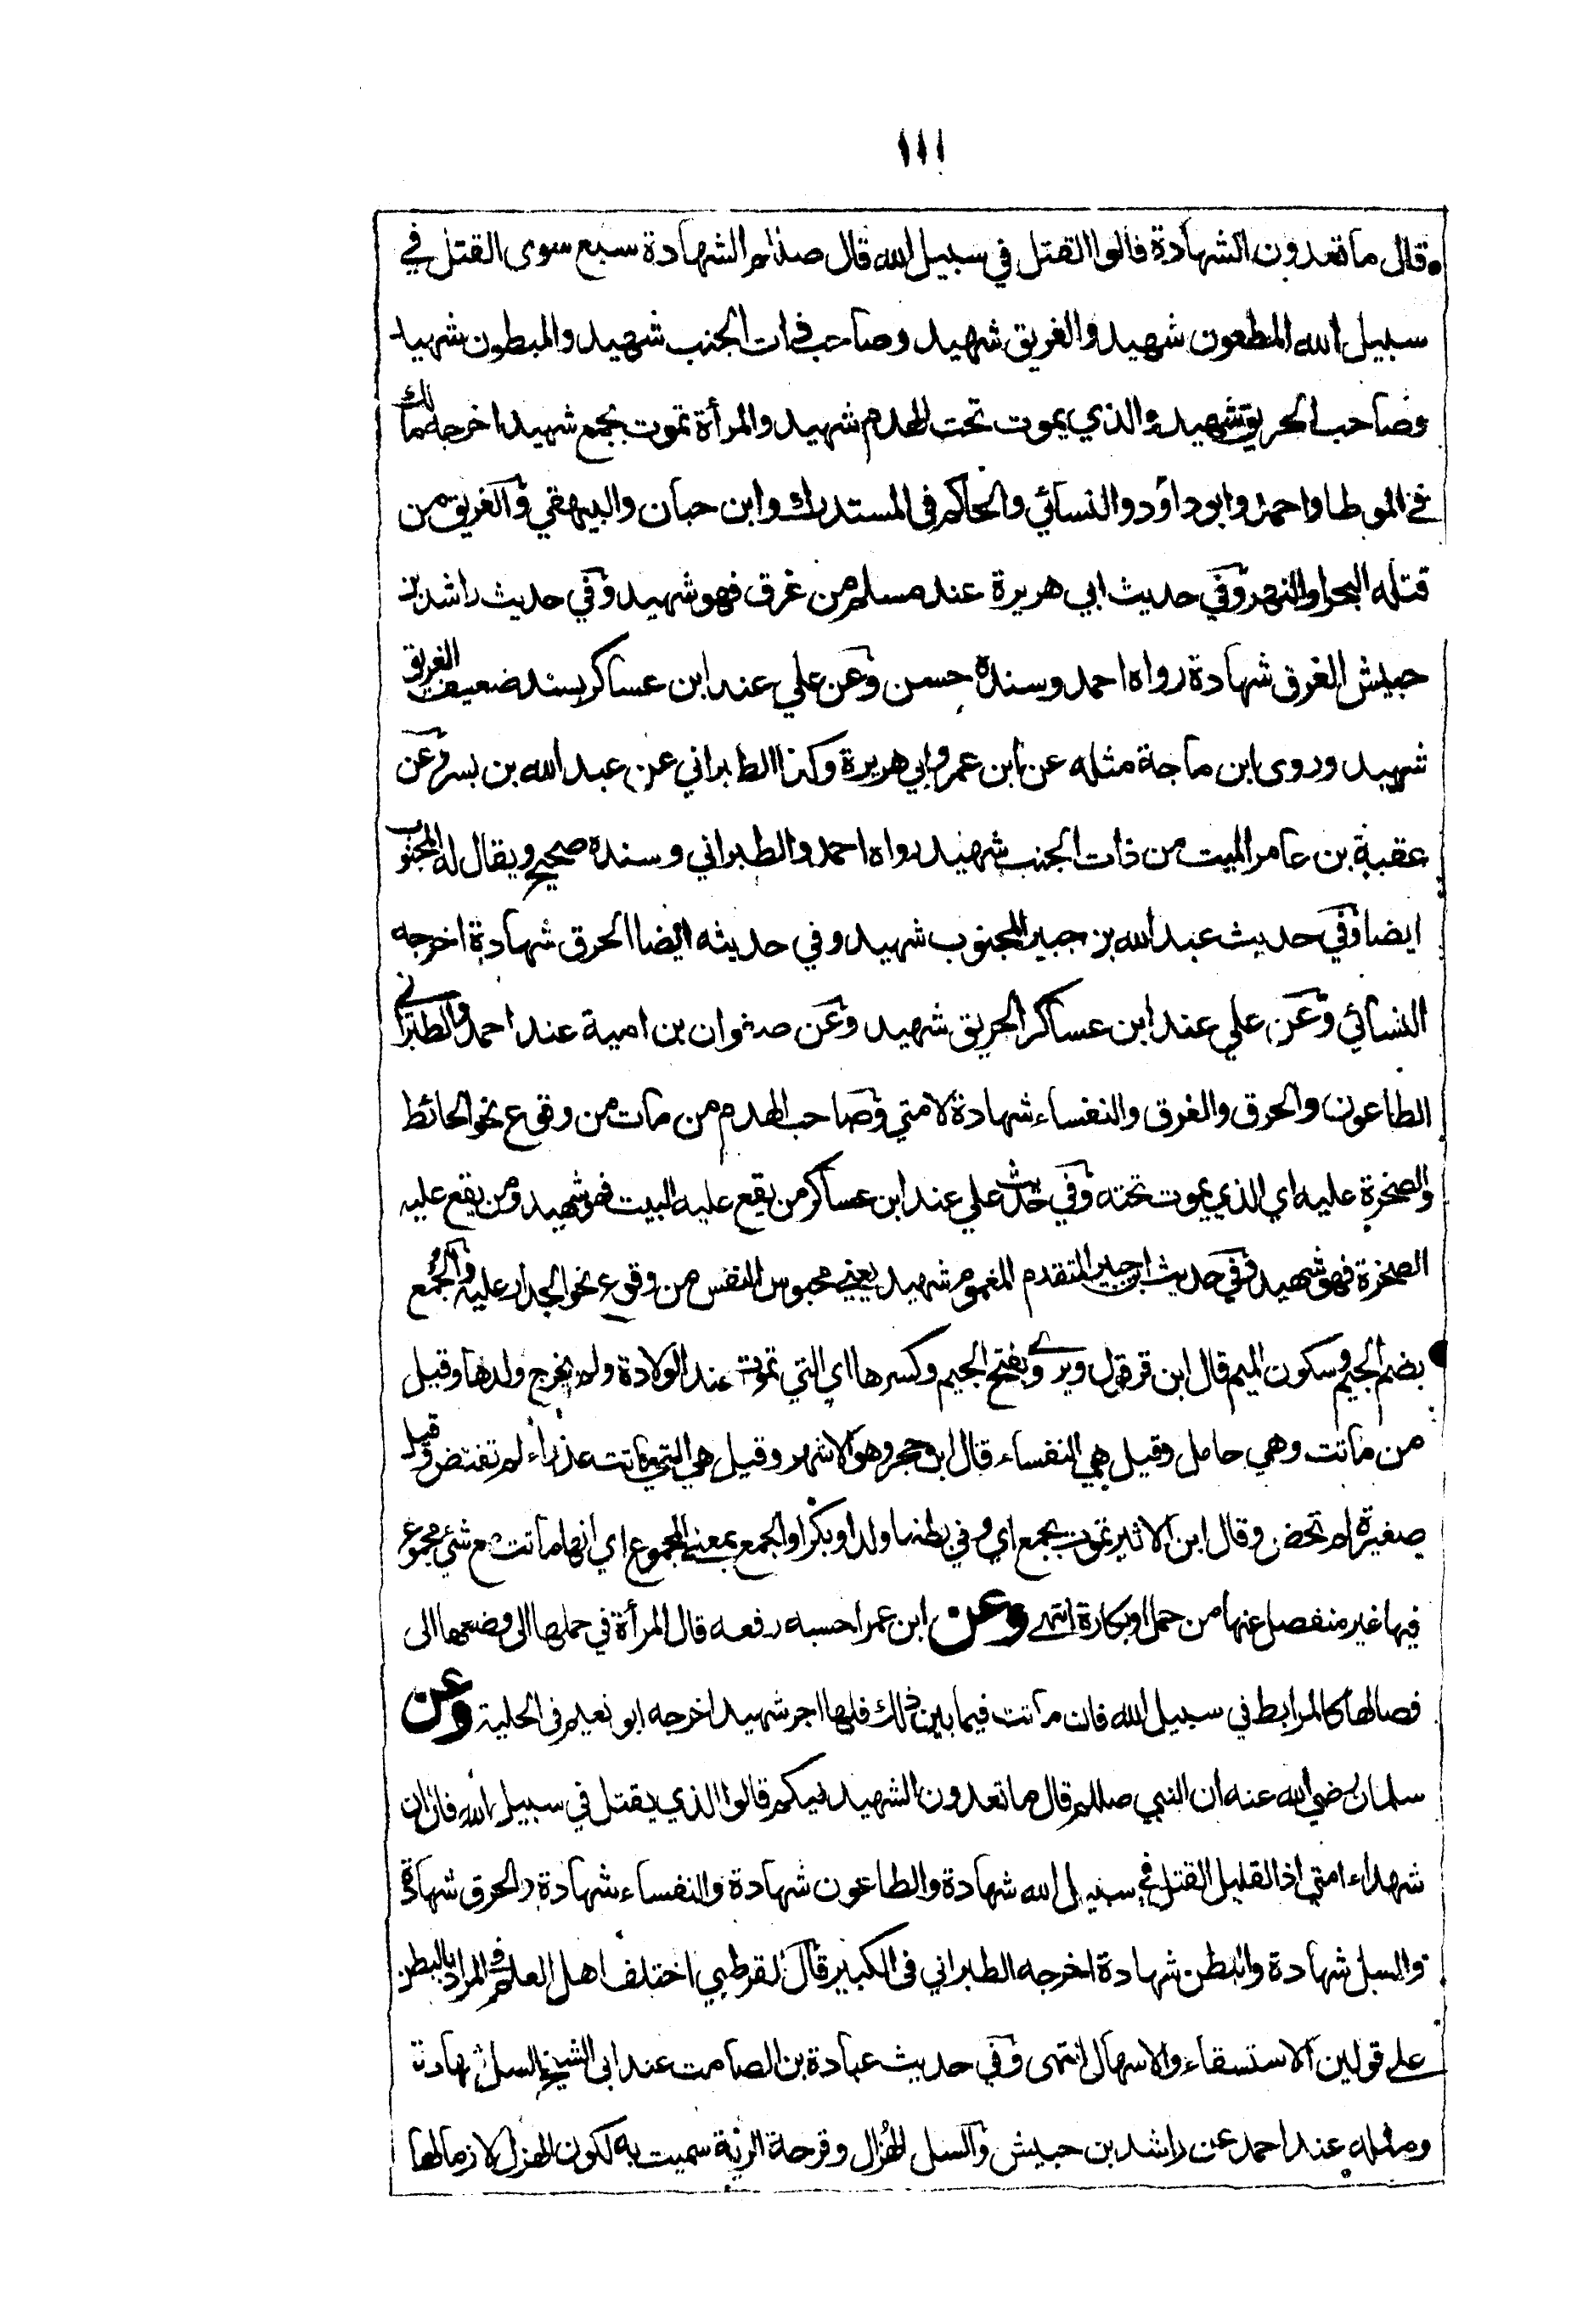 ١١١
قال ما تعدون الشهادة قالوا القتل في سبيل الله قال صللم الشهادة سبع سوى القتل في
سبيل الله المطعون شهيد والغريق شهيد وصاحب ذات الجنب شهيد والمبطون شهيد
وصاحب الحريق شهيد والذي يموت تحت الهدم شهيد والمرأة تموت بجمع شهيد اخرجه مالك
في الموطا واحمد وابو داود والنسائي والحاكم في المستدرك وابن حبان والبيهقي والغريق من
قتله البحر او النهر وفي حديث ابي هريرة عند مسلم من غرق فهو شهيد وفي حديث راشد بن
حبيش الغرق شهادة رواه احمد وسنده حسن وعن علي عند ابن عساكر بسند ضعيف الغريق
شهيد وروى ابن ماجة مثله عن ابن عمر وابي هريرة وكذا الطبراني عن عبد الله بن بسر وعن
عقبة بن عامر الميت من ذات الجنب شهيد رواه احمد والطبراني وسنده صحيح ويقال له المجنوب
ايضا وفي حديث عبد الله بن جبير المجنوب شهيد وفي حديثه ايضا الحرق شهادة اخرجه
النسائي وعن علي عند ابن عساكر الحريق شهيد وعن صفوان بن امية عند احمد والطبراني
الطاعون والحرق والغرق والنفساء شهادة لامتي وصاحب الهدم من مات من وقوع نحو الحائط
والصخرة عليه اي الذي يموت تحته وفي حديث علي عند ابن عساكر من يقع عليه البيت فهو شهيد ومن يقع عليه
الصخرة فهو شهيد وفي حديث ابن جبير المتقدم المغموم شهيد يعني محبوس النفس من وقوع نحو الجدار عليه والجُمع
بضم الجيم وسكون الميم قال ابن قرقول ويروى بفتح الجيم وكسرها اي التي تموت عند الولادة ولم يخرج ولدها وقيل
من ماتت وهي حامل وقيل هي النفساء قال ابن حجر وهو الاشهر وقيل هي التي ماتت عذراء لم تفتض وقيل
صغيرة لم تحض وقال ابن الاثير تموت بجمع اي وفي بطنها ولد او بكرا والجمع بمعنى المجموع اي انها ماتت مع شئ مجموع
فيها غير منفصل عنها من حمل او بكارة انتهى وعن ابن عمر احسبه رفعه قال المرأة في حملها الى وضعها الى
فصالها كالمرابط في سبيل الله فان ماتت فيما بين ذلك فلها اجر شهيد اخرجه ابو نعيم في الحلية وعن
سلمان رضي الله عنه ان النبي صللم قال ما تعدون الشهيد فيكم قالوا الذي يقتل في سبيل الله قال ان
شهداء امتي اذا لقليل القتل في سبيل الله شهادة والطاعون شهادة والنفساء شهادة والحرق شهادة
والسل شهادة والبطن شهادة اخرجه الطبراني في الكبير قال القرطبي اختلف اهل العلم في المراد بالبطن
على قولين الاستسقاء والاسهال انتهى وفي حديث عبادة بن الصامت عند ابي الشيخ السل شهادة
ومثله عند احمد عن راشد بن حبيش والسل الهُزال وقرحة الرئة سميت به لكون الهزل لازما لها